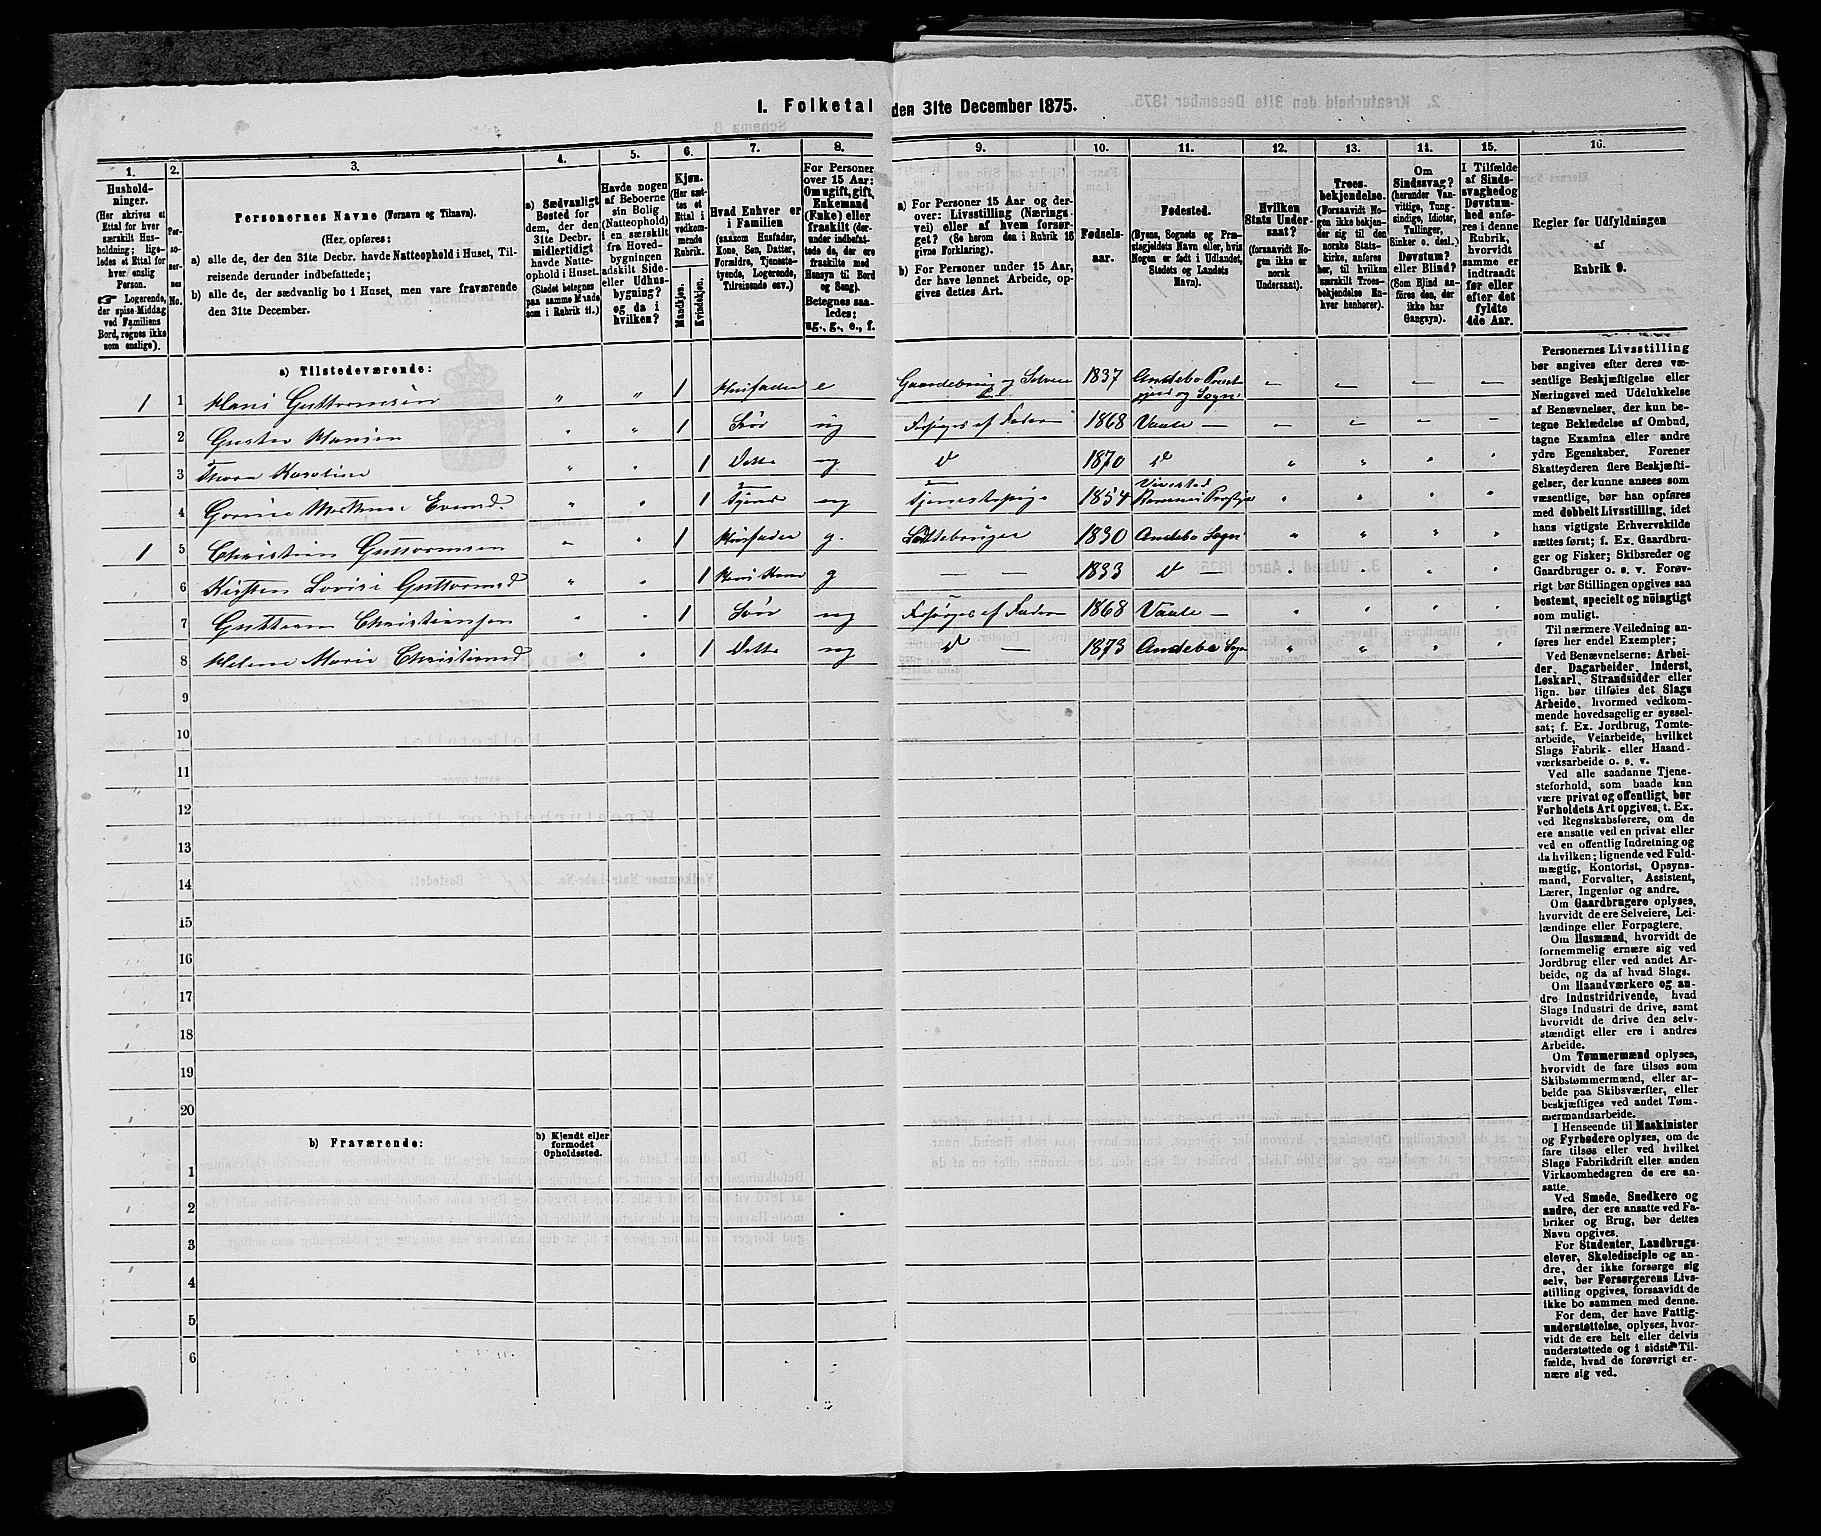 1. Folketal den 31te December 1875.
1.
Hushold-
ninger.
(Her skrives et
Ettal for hver
særskilt Hus-
holdning; lige-
ledes et Ettal for
hver enslig
Person.
☞ Logerende,
der spise Middag
ved Familiens
Bord, regnes ikke
som enslige).
2.
Per-
so-
ner-
nes
No.
3.
Personernes Navne (Fornavn og Tilnavn).
(Her opføres:
a) alle de, der den 31te Decbr. havde Natteophold i Huset, Til-
reisende derunder indbefattede;
b) alle de, der sædvanlig bo i Huset, men vare fraværende
den 31te December.
4.
a) Sædvanligt
Bosted for
dem, der den
31te Decbr.
midlertidigt
havde Natte-
ophold i Huset.
(Stedet betegnes
paa samme Maade
som i Rubrik 11.)
5.
Havde nogen
af Beboerne
sin Bolig
(Natteophold)
i en særskilt
fra Hoved-
bygningen
adskilt Side-
eller Udhus-
bygning?
og da i
hvilken?
6.
Kjøn.
(Her sæt-
tes et
Ettal i
vedkom-
mende
Rubrik.
Mandkjøn.
Kvindekjøn.
7.
Hvad Enhver er
i Familien
(saasom Husfader,
Kone, Søn, Datter,
Forældre, Tjeneste-
tyende, Logerende,
Tilreisende osv.)
8.
For Personer
over 15 Aar:
Om ugift, gift,
Enkemand
(Enke) eller
fraskilt (der-
under indbefat-
tede de, der ere
fraskilte med
Hensyn til Bord
og Seng).
Betegnes saa-
ledes:
ug., g., e., f.
9.
a) For Personer 15 Aar og der-
over: Livsstilling (Nærings-
vei) eller af hvem forsør-
get? (Se herom den i Rubrik 16
givne Forklaring).
b) For Personer under 15 Aar,
der have lønnet Arbeide, op-
gives dettes Art.
10.
Fødsels-
aar.
11.
Fødested.
(Byens, Sognets og Præ-
stegjeldets Navn eller, hvis
Nogen er født i Udlandet,
Stedets og Landets
Navn).
12.
Hvilken
Stats Under-
saat?
(forsaavidt No-
gen ikke er
norsk
Undersaat).
13.
Troes-
bekjendelse.
(Forsaavidt No-
gen ikke bekjen-
der sig til den
norske Stats-
kirke, anføres
her, til hvilken
særskilt Troes-
bekjendelse En-
hver henhører).
14.
Om
Sindssvag?
(herunder Van-
vittige, Tung-
sindige, Idioter,
Tullinger,
Sinker o. desl.)
Døvstum?
eller Blind?
(Som Blind an-
føres den, der
ikke har
Gangsyn).
15.
I Tilfælde
af Sinds-
svaghed og
Døvstum-
hed anfø-
res i denne
Rubrik,
hvorvidt
samme er
indtraadt
før eller
efter det
fyldte
4de Aar.
16.
Regler for Udfyldningen
af
Rubrik 9.
a) Tilstedeværende:
1 1 Hans Guttormsen " " 1 Husfader e Gaardebrug og Selveier 1837 Andebo Præst-
gjeld og Sogn
2 Gustav Hansen " " 1 Søn ug Forsørges af Faderen 1868 Vaale —
3 Thora Karoline " " 1 Datter ug d 1870 d " " " "
4 1 Tjener ug Tjenestepige 1854 Vivestad
Ramnes Prestgj " " " "
1 5 Christian Guttormsen " " 1 Husfader g. 1830 Andebo Sogn " " " "
6 Kirsten Lovise Guttormsd " " 1 Hans Kone g — — 1833 d — " " " "
7 Guttorm Christiansen " " 1 Søn ug Forsørges af Faderen 1868 Vaale — " " " "
8 Helene Marie Christiansd " " 1 Datter ug d — 1873 Andebo Sogn " " " "
9
10
11
12
13
14
15
16
17
18
19
20
b) Fraværende:
b) Kjendt eller
formodet
Opholdssted.
1
2
3
4
5
6
Personernes Livsstilling
bør angives efter deres væ-
sentlige Beskjæftigelse eller
Næringsvei med Udelukkelse
af Benævnelser, der kun be-
tegne Beklædelse af Ombud,
tagne Examina eller andre
ydre Egenskaber. Forener
Skatteyderen flere Beskjæfti-
gelser, der kunne ansees som
væsentlige, bør han opføres
med dobbelt Livsstilling, idet
hans vigtigste Erhvervskilde
sættes først; f. Ex. Gaardbru-
ger og Fisker; Skibsreder og
Gaardbruger o. s. v. Forøv-
rigt bør Stillingen opgives saa
bestemt, specielt og nøiagtigt
som muligt.
Til nærmere Veiledning an-
føres her endel Exempler;
Ved Benævnelserne: Arbei-
der, Dagarbeider, Inderst,
Løskarl, Strandsidder eller
lign. bør tilføies det Slags
Arbeide, hvormed vedkom-
mende hovedsagelig er syssel-
sat; f. Ex. Jordbrug, Tomte-
arbeide, Veiarbeide, hvilket
Slags Fabrik- eller Haand-
værksarbeide o. s. v.
Ved alle saadanne Tjene-
steforhold, som baade kan
være privat og offentligt, bør
Forholdets Art opgives, t. Ex.
ved Regnskabsførere, om de
ere ansatte ved en privat eller
ved en offentlig Indretning og
da hvilken; lignende ved Fuld-
mægtig, Kontorist, Opsyns-
mand, Forvalter, Assistent,
Lærer, Ingeniør og andre.
Om Gaardbrugere oplyses,
hvorvidt de ere Selveiere, Lei-
lændinge eller Forpagtere.
Om Husmænd, hvorvidt de
fornemmelig ernære sig ved
Jordbrug eller ved andet Ar-
beide, og da af hvad Slags.
Om Haandværkere og an-
dre Industridrivende, hvad
Slags Industri de drive, samt
hvorvidt de drive den selv-
stændigt eller ere i andres
Arbeide.
Om Tømmermænd oplyses,
hvorvidt de fare tilsøs som
Skibstømmermænd, eller ar-
beide paa Skibsværfter, eller
beskjæftiges ved andet Tøm-
mermandsarbeide.
I Henseende til Maskinister
og Fyrbødere oplyses, om de
fare tilsøs eller ved hvilket
Slags Fabrikdrift eller anden
Virksomhedsgren de ere an-
satte.
Ved Smede, Snedkere og
andre, der ere ansatte ved Fa-
briker og Brug, bør dettes
Navn opgives.
For Studenter, Landbrugs-
elever, Skoledisciple og an-
dre, der ikke forsørge sig
selv, bør Forsørgerens Livs-
stilling opgives, forsaavidt de
ikke bo sammen med denne.
For dem, der have Fattig-
understøttelse, oplyses, hvor-
vidt de ere helt eller delvis
understøttede og i sidste Til-
fælde, hvad de forøvrigt er-
nære sig ved.